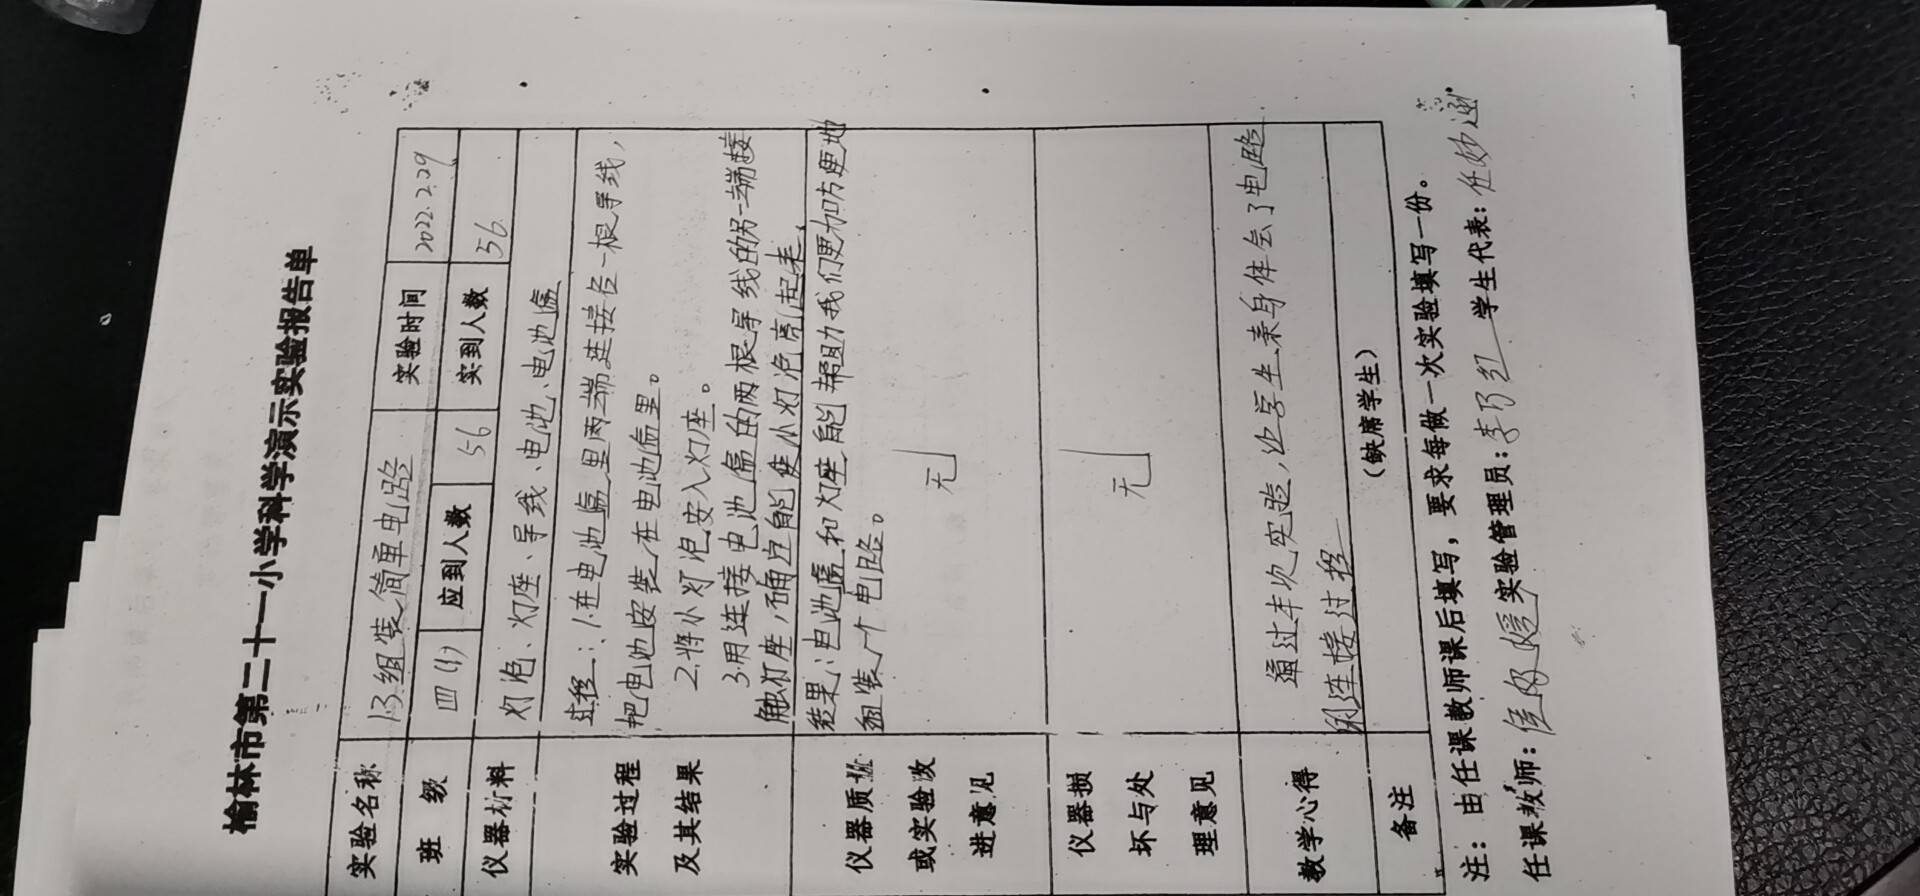 榆林市第二十一小学科学演示实验报告单
实验名称 13组装简单电路 实验时间 2022.2.29
班 级 四(1) 应到人数 56 实到人数 56
仪器材料 灯泡、灯座、导线、电池、电池盒
实验过程及其结果
过程:1.在电池盒里两端连接各一根导线,
把电池安装在电池盒里。
2.将小灯泡安入灯座。
3.用连接电池盒的两根导线的另一端接
触灯座,确定能使小灯泡亮起来,
结果:电池盒和灯座能帮助我们更加方便地
组装一个电路。
仪器质量或实验改进意见 无
仪器损坏与处理意见 无
教学心得
通过本次实验,让学生亲身体会了电路
的连接过程
备注 (缺席学生)
注:由任课教师课后填写,要求每做一次实验填写一份。
任课教师: 实验管理员: 学生代表:任妙涵